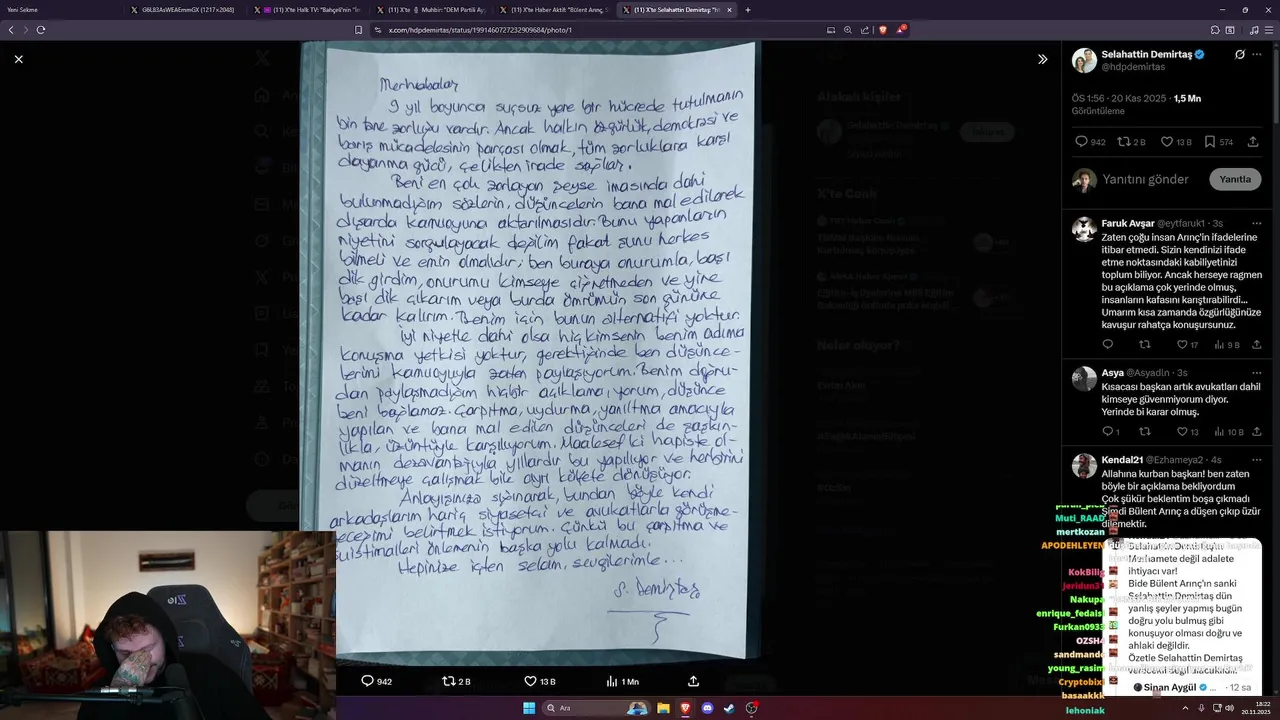 Yeni Sekme
G6L83AaWEAEmmGX (1217×2048)
(11) X'te Halk TV: "Bahçeli'nin "İm
(11) X'te Muhbir: "DEM Partili Ay
(11) X'te Haber Aktif: "Bülent Arınç, S
(11) X'te Selahattin Demirtaş: "h
x.com/hdpdemirtas/status/1991460727232909684/photo/1
Merhabalar,
9 yıl boyunca suçsuz yere bir hücrede tutulmanın
bin tane zorluğu vardır. Ancak halkın özgürlük, demokrasi ve
barış mücadelesinin parçası olmak, tüm zorluklara karşı
dayanma gücü, çelikten irade sağlar.
Beni en çok zorlayan şeyse imasında dahi
bulunmadığım sözlerin, düşüncelerin bana mal edilerek
dışarda kamuoyuna aktarılmasıdır. Bunu yapanların
niyetini sorgulayacak değilim fakat şunu herkes
bilmeli ve emin olmalıdır; ben buraya onurumla, başı
dik girdim, onurumu kimseye çiğnetmeden ve yine
başı dik çıkarım veya burda ömrümün son gününe
kadar kalırım. Benim için bunun alternatifi yoktur.
İyi niyetle dahi olsa hiç kimsenin benim adıma
konuşma yetkisi yoktur, gerektiğinde ben düşünce-
lerimi kamuoyuyla zaten paylaşıyorum. Benim doğru-
dan paylaşmadığım hiçbir açıklama, yorum, düşünce
beni bağlamaz. Çarpıtma, uydurma, yanıltma amacıyla
yapılan ve bana mal edilen düşünceleri de şaşkın-
lıkla, üzüntüyle karşılıyorum. Maalesef ki hapiste ol-
manın dezavantajıyla yıllardır bu yapılıyor ve herbirini
düzeltmeye çalışmak bile ayrı külfete dönüşüyor.
Anlayışınıza sığınarak, bundan böyle kendi
arkadaşlarım hariç siyasetçi ve avukatlarla görüşme-
yeceğimi belirtmek istiyorum. Çünkü bu çarpıtma ve
suistimalleri önlemenin başka yolu kalmadı.
Hepinize içten selam, sevgilerimle...
S. Demirtaş
942
2 B
13 B
1 Mn
Selahattin Demirtaş
@hdpdemirtas
ÖS 1:56 · 20 Kas 2025 · 1,5 Mn
Görüntüleme
942 2 B 13 B 574
Yanıtını gönder
Yanıtla
Faruk Avşar @eytfaruk1 · 3s
Zaten çoğu insan Arınç'in ifadelerine
itibar etmedi. Sizin kendinizi ifade
etme noktasındaki kabiliyetinizi
toplum biliyor. Ancak herseye ragmen
bu açıklama çok yerinde olmuş,
insanların kafasını karıştırabilirdi...
Umarım kısa zamanda özgürlüğünüze
kavuşur rahatça konuşursunuz.
17 9 B
Asya @Asyadln · 3s
Kısacası başkan artık avukatları dahil
kimseye güvenmiyorum diyor.
Yerinde bi karar olmuş.
1 13 10 B
Kendal21 @Ezhameya2 · 4s
Allahına kurban başkan! ben zaten
böyle bir açıklama bekliyordum
Çok şükür beklentim boşa çıkmadı
Şimdi Bülent Arınç a düşen çıkıp üzür
dilemektir.
Muti_RAAD
mertkozan
APODEHLEYEN
Merhamete değil adalete
ihtiyacı var!
KokBilig
Jeridun31
Bide Bülent Arınç'ın sanki
Selahattin Demirtaş dün
Nakupa
yanlış şeyler yapmış bugün
enrique_fedais
doğru yolu bulmuş gibi
Furkan0933
konuşuyor olması doğru ve
OZSH4
ahlaki değildir.
sandmando
Özetle Selahattin Demirtaş
young_rasim
Cryptobixi
Sinan Aygül · 12 sa
basaakkk
lehoniak
Ara
18:22
20.11.2025